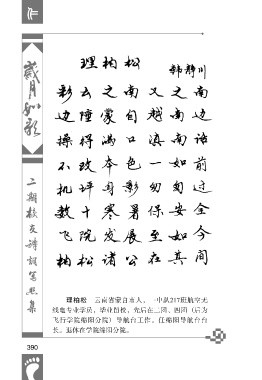 歲月如歌
二期校友诗词写照集
理柏松
韩静川
彩云之南又之南
边陲蒙自越南边
操得满口滇南话
不改本色一如前
机坪身影匆匆过
数十寒暑保安全
飞院发展至如今
柏松诸公在其间
理柏松　云南省蒙自市人，一中队217班航空无
线电专业学员，毕业留校，先后在二团、四团（后为
飞行学院绵阳分院）导航台工作，任绵阳导航台台
长。退休在学院绵阳分院。
390